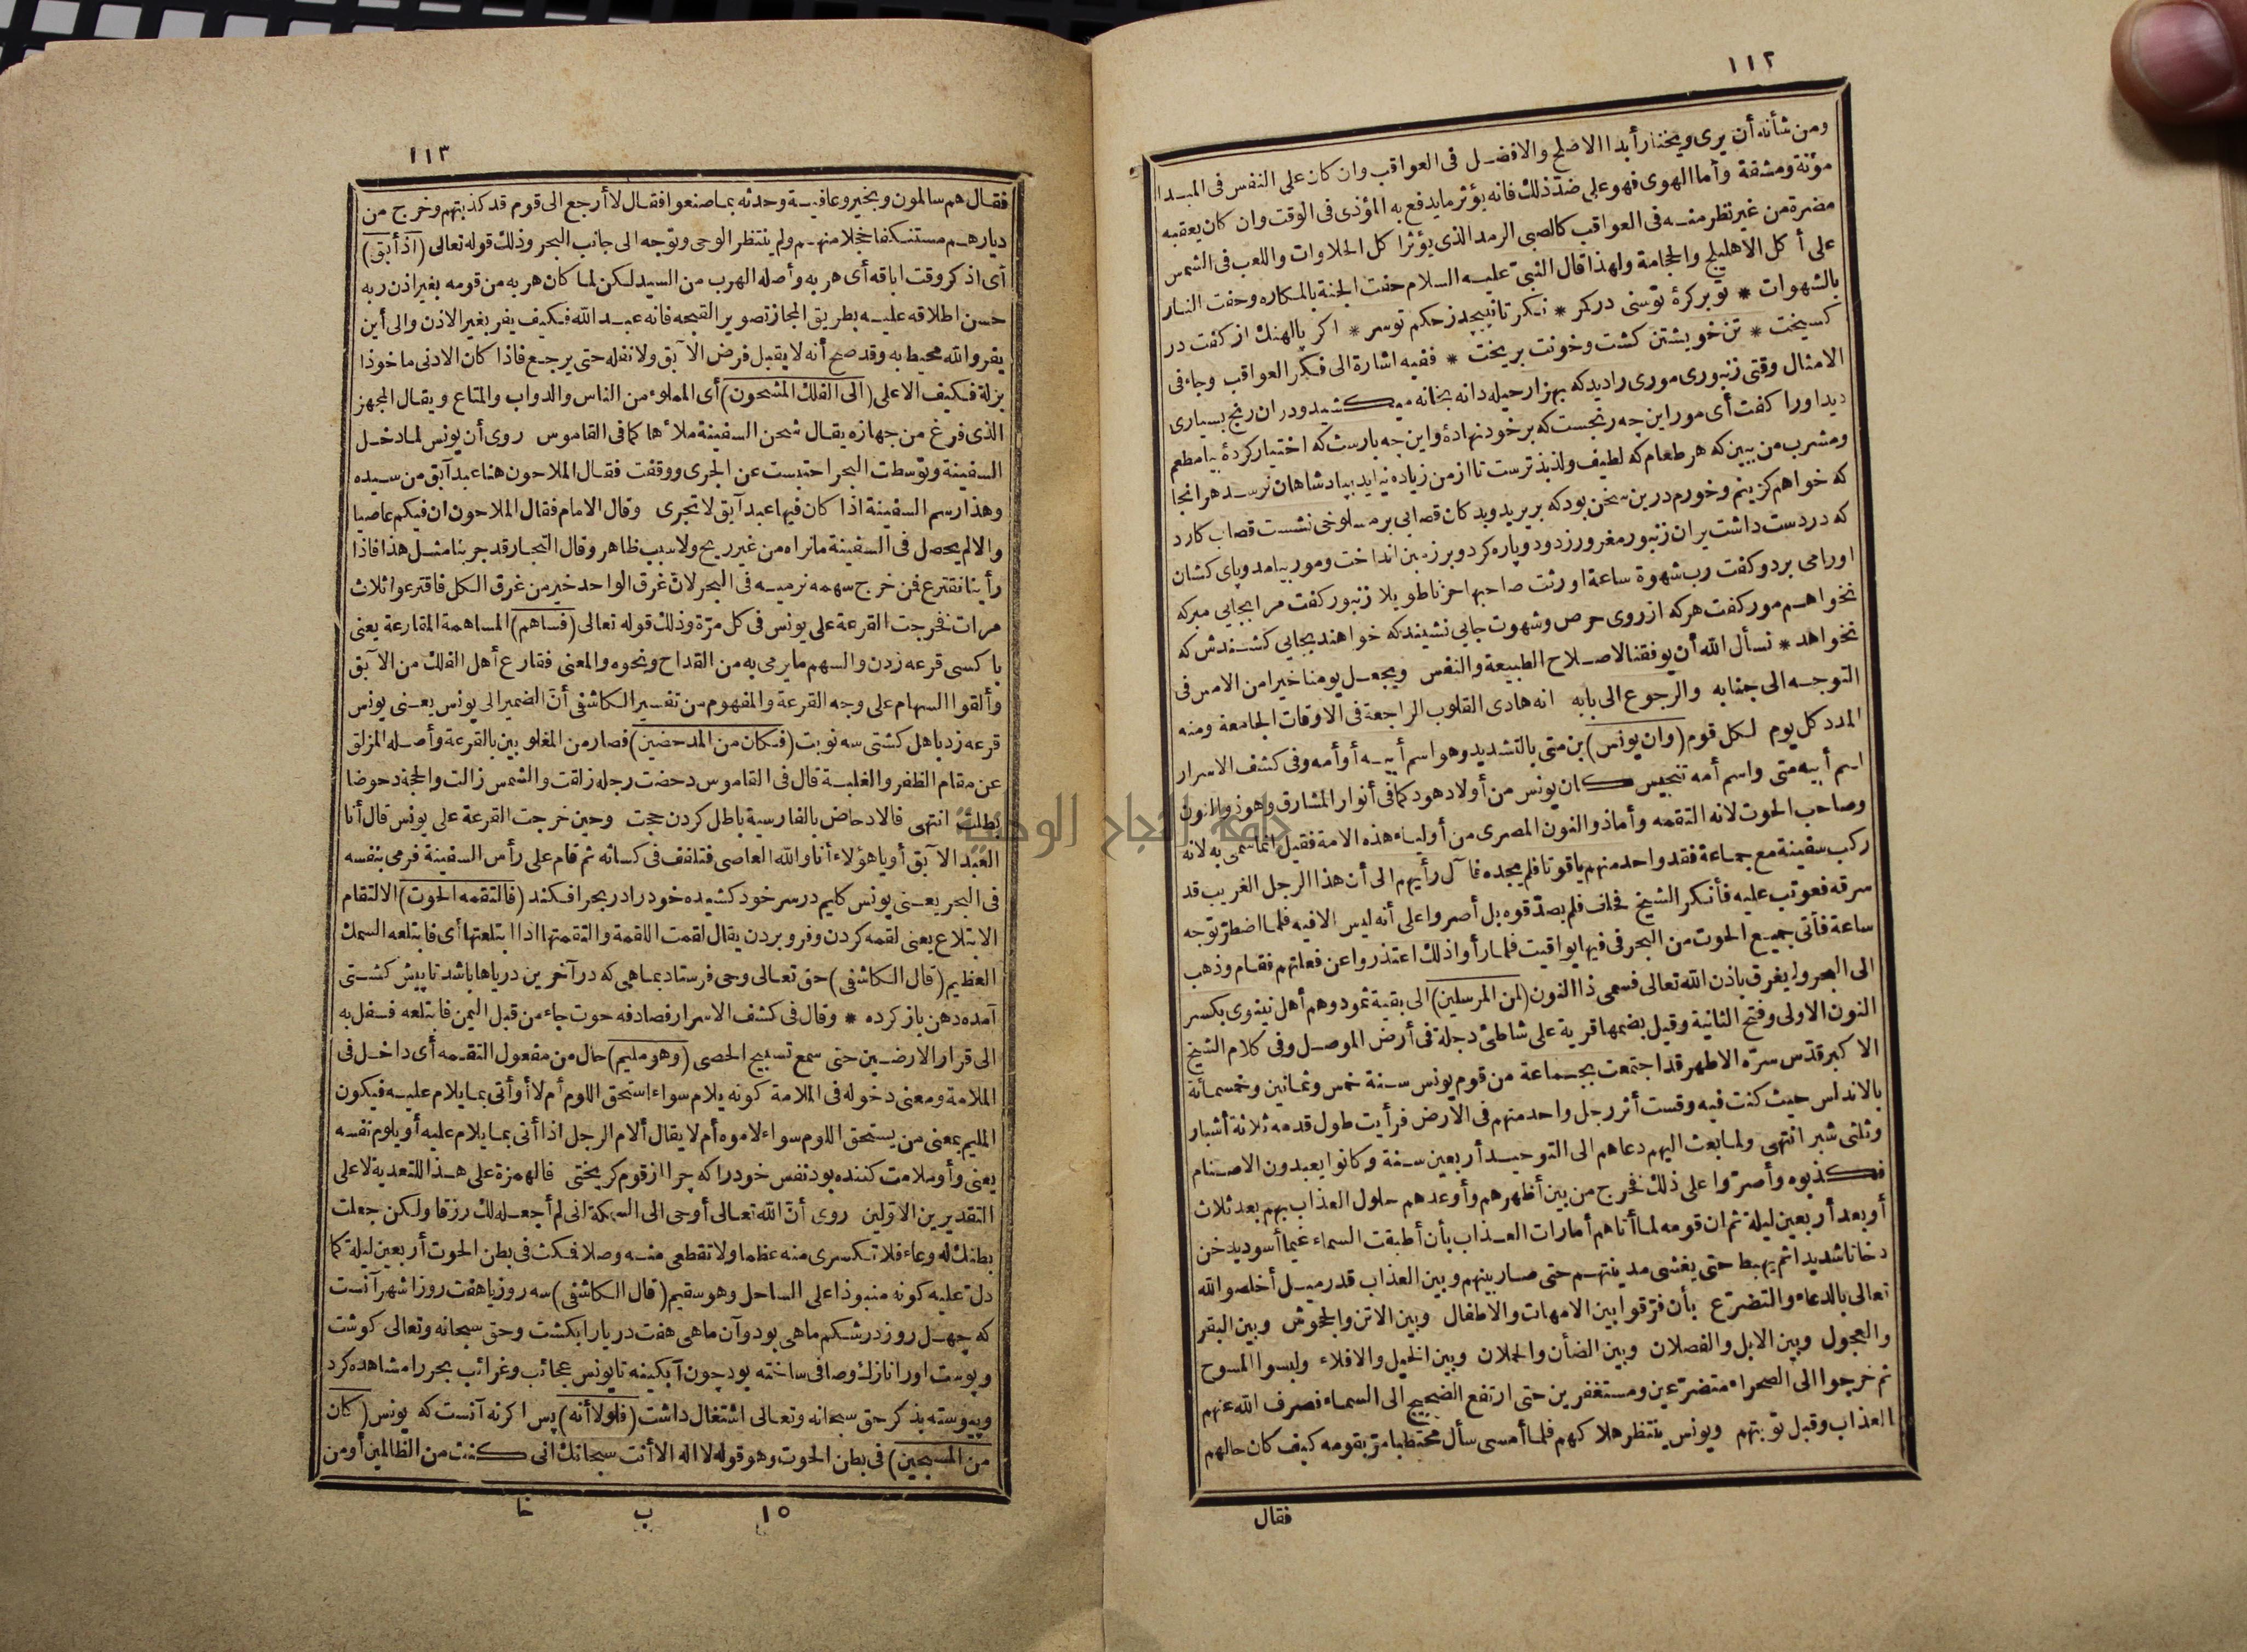 ١١٢
ومن شأنه أن يرى ويختار أبدا الاصلح والافضل فى العواقب وان كان على النفس فى المبدا
مؤنة ومشقة وأما الهوى فهو على ضد ذلك فانه يؤثر مايدفع به المؤذى فى الوقت وان كان يعقبه
مضرة من غير نظر منه فى العواقب كالصبى الرمد الذى يؤثر أكل الحلاوات واللعب فى الشمس
على أكل الاهليلج والحجامة ولهذا قال النبىّ عليه السلام حفت الجنة بالمكاره وحفت النار
بالشهوات * تو بر كرۀ توسنى در كمر * نكر تا نپيچد ز حكم تو سر * اكر پالهنك از كفت در
كسيخت * تن خويشتن كشت وخونت بريخت * ففيه اشارة الى فكر العواقب وجاء فى
الامثال وقتى زنبورى مورى راديد كه بهزار حيله دانه بخانه ميكشيد ودران رنج بسيارى
ديد اورا كفت أى مور اين چه رنجست كه بر خود نهادۀ واين چه بارست كه اختيار كردۀ بيا مطعم
ومشرب من ببين كه هر طعام كه لطيف ولذيذ ترست تا از من زياده نيايد بپادشاهان نرسد هر انجا
كه خواهم كزينم وخورم درين سخن بود كه بر پريد وبدكان قصابى بر مسلوخى نشست قصاب كارد
كه در دست داشت بران زنبور مغرور زد ودو پاره كرد وبر زمين انداخت ومور بيامد وپاى كشان
اورامى برد وكفت رب شهوة ساعة اورثت صاحبها حزنا طويلا زنبور كفت مرا بجايى مبر كه
نخواهم مور كفت هر كه از روى حرص وشهوت جايى نشيند كه خواهد بجايى كشندش كه
نخواهد * نسأل الله أن يوفقنا لاصلاح الطبيعة والنفس ويجعل يومنا خيرا من الامس فى
التوجه الى جنابه والرجوع الى بابه انه هادى القلوب الراجعة فى الاوقات الجامعة ومنه
المدد كل يوم لكل قوم (وان يونس) بن متى بالتشديد وهو اسم أبيه أو أمه وفى كشف الاسرار
اسم أبيه متى واسم أمه تنجيس كان يونس من أولاد هود كما فى أنوار المشارق وهو ذو النون
وصاحب الحوت لانه التقمه وأما ذو النون المصرى من أولياء هذه الامة فقيل انما سمى به لانه
ركب سفينة مع جماعة فقد واحد منهم ياقوتا فلم يجده فآل رأيهم الى أن هذا الرجل الغريب قد
سرقه فعوتب عليه فأنكر الشيخ فحلف فلم يصدّقوه بل أصروا على أنه ليس الا فيه فلما اضطرّ توجه
ساعة فأتى جميع الحوت من البحر فى فيها يواقيت فلما رأوا ذلك اعتذروا عن فعلتهم فقام وذهب
الى البحر ولم يغرق باذن الله تعالى فسمى ذا النون (لمن المرسلين) الى بقية ثمود وهم أهل نينوى بكسر
النون الاولى وفتح الثانية وقيل بضمها قرية على شاطئ دجلة فى أرض الموصل وفى كلام الشيخ
الاكبر قدّس سرّه الاطهر قد اجتمعت بجماعة من قوم يونس سنة خمس وثمانين وخمسمائة
بالاندلس حيث كنت فيه وقست أثر رجل واحد منهم فى الارض فرأيت طول قدمه ثلاثة أشبار
وثلثى شبر انتهى ولما بعث اليهم دعاهم الى التوحيد أربعين سنة وكانوا يعبدون الاصنام
فكذبوه وأصرّوا على ذلك فخرج من بين أظهرهم وأوعدهم حلول العذاب بهم بعد ثلاث
أو بعد أربعين ليلة ثم ان قومه لما أتاهم أمارات العذاب بأن أطبقت السماء غيما أسود يدخن
دخانا شديدا ثم يهبط حتى يغشى مدينتهم حتى صار بينهم وبين العذاب قدر ميل أخلصوا لله
تعالى بالدعاء والتضرّع بأن فرّقوا بين الامهات والاطفال وبين الاتن والجحوش وبين البقر
والعجول وبين الابل والفصلان وبين الضأن والحملان وبين الخيل والافلاء ولبسوا المسوح
ثم خرجوا الى الصحراء متضرّعين ومستغفرين حتى ارتفع الضجيج الى السماء فصرف الله عنهم
العذاب وقبل توبتهم ويونس ينتظر هلاكهم فلما أمسى سأل محتطبا مرّ بقومه كيف كان حالهم
فقال
١١٣
فقال هم سالمون وبخير وعافية وحدثه بما صنعوا فقال لا أرجع الى قوم قد كذبتهم وخرج من
ديارهم مستنكفا خجلا منهم ولم ينتظر الوحى وتوجه الى جانب البحر وذلك قوله تعالى (اذ أبق)
أى اذكر وقت اباقه أى هربه وأصله الهرب من السيد لكن لما كان هربه من قومه بغير اذن ربه
حسن اطلاقه عليه بطريق المجاز تصوير القبحه فانه عبد الله فكيف يفر بغير الاذن والى أين
يفر والله محيط به وقد صح أنه لا يقبل فرض الآبق ولا نفله حتى يرجع فاذا كان الادنى ماخوذا
بزلة فكيف الاعلى (الى الفلك المشحون) أى المملوء من الناس والدواب والمتاع ويقال المجهز
الذى فرغ من جهازه يقال شحن السفينة ملأها كما فى القاموس روى أن يونس لما دخل
السفينة وتوسطت البحر احتبست عن الجرى ووقفت فقال الملاحون هنا عبد آبق من سيده
وهذا رسم السفينة اذا كان فيها عبد آبق لا تجرى وقال الامام فقال الملاحون ان فيكم عاصيا
والا لم يحصل فى السفينة ما نراه من غير ريح ولا سبب ظاهر وقال التجار قد جربنا مثل هذا فاذا
رأينا نقترع فمن خرج سهمه نرميه فى البحر لان غرق الواحد خير من غرق الكل فاقترعوا ثلاث
مرات فخرجت القرعة على يونس فى كل مرّة وذلك قوله تعالى (فساهم) المساهمة المقارعة يعنى
با كسى قرعه زدن والسهم ما يرمى به من القداح ونحوه والمعنى فقارع أهل الفلك من الآبق
وألقوا السهام على وجه القرعة والمفهوم من تفسير الكاشفى أنّ الضمير الى يونس يعنى يونس
قرعه زد با هل كشتى سه نوبت (فكان من المدحضين) فصار من المغلوبين بالقرعة وأصله المزلق
عن مقام الظفر والغلبة قال فى القاموس دحضت رجله زلقت والشمس زالت والحجة دحوضا
بطلت انتهى فالادحاض بالفارسية باطل كردن حجت وحين خرجت القرعة على يونس قال أنا
العبد الآبق أو يا هؤلاء أنا والله العاصى فتلفف فى كسائه ثم قام على رأس السفينة فرمى بنفسه
فى البحر يعنى يونس كليم در سر خود كشيده خود را در بحر افكند (فالتقمه الحوت) الالتقام
الابتلاع يعنى لقمه كردن وفرو بردن يقال لقمت اللقمة والتقمتها اذا ابتلعتها أى فابتلعه السمك
العظيم (قال الكاشفى) حق تعالى وحى فرستاد بماهيى كه در آخرين درياها باشد تا پيش كشتى
آمده دهن باز كرده * وقال فى كشف الاسرار فصادفه حوت جاء من قبل اليمن فابتلعه فسفل به
الى قرار الارضين حتى سمع تسبيح الحصى (وهو مليم) حال من مفعول التقمه أى داخل فى
الملامة ومعنى دخوله فى الملامة كونه يلام سواء استحق اللوم أم لا أو أتى بما يلام عليه فيكون
المليم بمعنى من يستحق اللوم سواء لاموه أم لا يقال ألام الرجل اذا أتى بما يلام عليه أو يلوم نفسه
يعنى وأو ملامت كننده بود نفس خود را كه چرا از قوم كريختى فالهمزة على هذا للتعدية لا على
التقديرين الاوّلين روى أنّ الله تعالى أوحى الى السمكة انى لم أجعله لك رزقا ولكن جعلت
بطنك له وعاء فلا تكسرى منه عظما ولا تقطعى منه وصلا فمكث فى بطن الحوت أربعين ليلة كما
دلّ عليه كونه منبوذا على الساحل وهو سقيم (قال الكاشفى) سه روز يا هفت روز اشهر آنست
كه چهل روز در شكم ماهى بود وآن ماهى هفت دريا را بكشت وحق سبحانه وتعالى كوشت
وپوست اورا نازك وصافى ساخته بود چون آبكينه تا يونس عجائب وغرائب بحر را مشاهده كرد
وپيوسته بذكر حق سبحانه وتعالى اشتغال داشت (فلولا أنه) پس اكر نه آنست كه يونس (كان
من المسبحين) فى بطن الحوت وهو قوله لا اله الا أنت سبحانك انى كنت من الظالمين أو من
١٥ ب خا